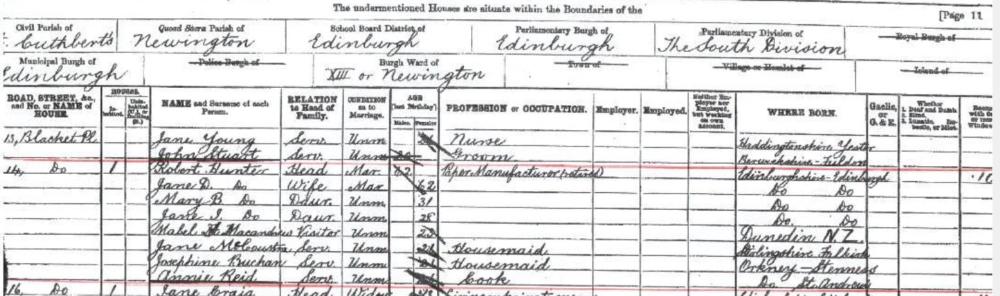 The undermentioned Houses are situate within the Boundaries of the
[Page 11
Civil Parish of Quoad Sacra Parish of School Board District of Parliamentary Burgh of Parliamentary Division of Royal Burgh of
St. Cuthbert's Newington Edinburgh Edinburgh The South Division
Municipal Burgh of Police Burgh of Burgh Ward of Town of Village or Hamlet of Island of
Edinburgh XIII or Newington
ROAD, STREET, &c., and No. or NAME of HOUSE. HOUSES. Inhabited. NAME and Surname of each Person. RELATION to Head of Family. CONDITION as to Marriage. AGE [last Birthday]. Males. Females. PROFESSION or OCCUPATION. Employer. Employed. Neither Employer nor Employed, but working on own account. WHERE BORN. Gaelic, or G. & E. Whether 1. Deaf and Dumb 2. Blind. 3. Lunatic,
13, Blacket Pl. Jane Young Serv. Unm Nurse Haddingtonshire Yester
John Stuart Serv. Unm 20 Groom Berwickshire
14, Do 1 Robert Hunter Head Mar 62 Paper Manufacturer (retired) Edinburghshire Edinburgh
Jane D. Do Wife Mar 62 Do Do
Mary B Do Daur. Unm 31 Do Do
Jane I. Do Daur. Unm 28 Do Do
Mabel Macandrew Visitor Unm 23 Dunedin N.Z.
Jane Serv. Unm Housemaid Stirlingshire Falkirk
Josephine Buchan Serv. Unm Housemaid Orkney Stenness
Annie Reid Serv. Unm Cook Do St. Andrews
16, Do 1 Jane Craig Head Widow